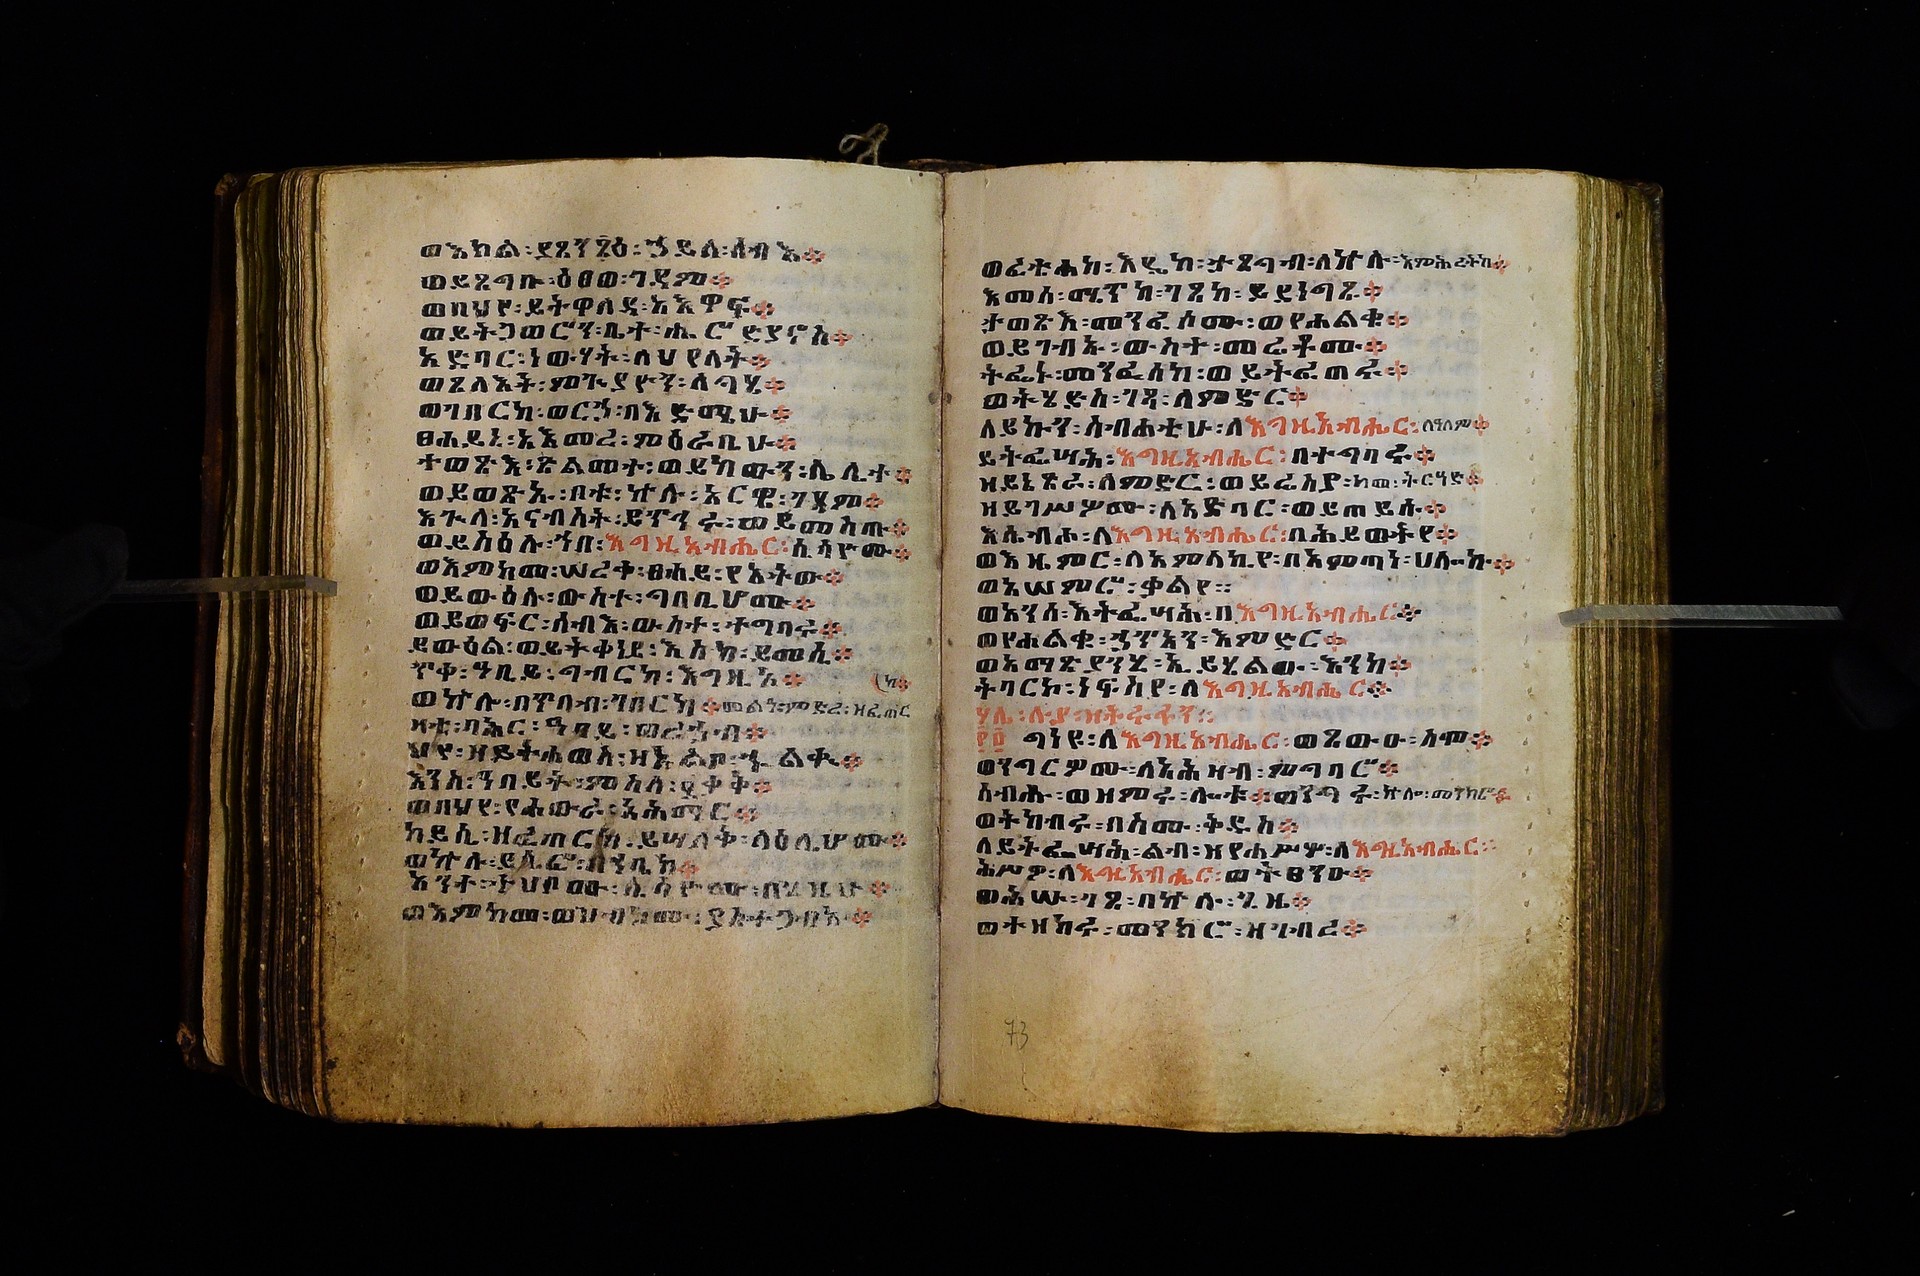 ወእክል፡ያጸንዕ፡ኃይለ፡ሰብእ
ወይጸግቡ፡ዕፀወ፡ገዳም
ወበህየ፡ይትዋለዱ፡አእዋፍ
ወይትጋወርን፡ቤተ፡ሔሮድያኖስ
አድባር፡ነውኃት፡ለህየላት
ወጸላእት፡ምጕያዮን፡ለግሄ
ወገበርከ፡ወርኀ፡በእድሜሁ
ፀሐይኒ፡አእመረ፡ምዕራቢሁ
ተወጽእ፡ጽልመተ፡ወይከውን፡ሌሊተ
ወይወጽኡ፡ቦቱ፡ኵሉ፡አርዌ፡ገዳም
እጕለ፡አናብስት፡ይጥኅሩ፡ወይመስጡ
ወይስዕሉ፡ኀበ፡እግዚአብሔር፡ሲሳዮሙ
ወእምከመ፡ሠረቀ፡ፀሐይ፡የአትው
ወይውዕሉ፡ውስተ፡ግበቢሆሙ
ወይወፍር፡ሰብእ፡ውስተ፡ተግባሩ
ይውዕል፡ወይትቀነይ፡እስከ፡ይመሲ
ጥቀ፡ዓቢይ፡ግብርከ፡እግዚኦ (ከ
ወኵሎ፡በጥበብ፡ገበርከ መልዓ፡ምድረ፡ዘፈጠር
ዛቲ፡ባሕር፡ዓባይ፡ወረኃብ
ህየ፡ዘይትሐወስ፡ዘአልቦ፡ኍልቈ
እንስሳ፡ዓበይት፡ምስለ፡ደቀቅ
ወበህየ፡የሐውራ፡አሕማር
ከይሲ፡ዘፈጠርከ፡ይሣለቅ፡ላዕሌሆሙ
ወኵሉ፡ይሴፎ፡በኀቤከ
እንተ፡ትሁቦሙ፡ሲሳዮሙ፡በጊዜሁ
ወእምከመ፡ወሀብኮሙ፡ያስተጋብኡ
ወፈቲሐከ፡እዴከ፡ታጸግብ፡ለኵሉ፡እምሕረትከ
እመሰ፡ሜጥከ፡ገጸከ፡ይደነግፁ
ታወጽእ፡መንፈሶሙ፡ወየሐልቁ
ወይገብኡ፡ውስተ፡መሬቶሙ
ትፌኑ፡መንፈሰከ፡ወይትፈጠሩ
ወትሄድስ፡ገጻ፡ለምድር
ለይኩን፡ስብሐቲሁ፡ለእግዚአብሔር፡ለዓለም
ይትፌሣሕ፡እግዚአብሔር፡በተግባሩ
ዘይኔጽራ፡ለምድር፡ወይሬስያ፡ከመ፡ትርዓድ
ዘይገሥሦሙ፡ለአድባር፡ወይጠይሱ
እሴብሖ፡ለእግዚአብሔር፡በሕይወትየ
ወእዜምር፡ለአምላኪየ፡በአምጣነ፡ሀሎኩ
ወአሠምሮ፡ቃልየ።
ወአንሰ፡እትፌሣሕ፡በእግዚአብሔር
ወየሐልቁ፡ኃጥአን፡እምድር
ወአማፅያንሂ፡ኢይሄልው፡እንከ
ትባርክ፡ነፍስየ፡ለእግዚአብሔር
ሃሌ፡ሉያ፡ዝትራፋን።
፻፬ ግነዩ፡ለእግዚአብሔር፡ወጸውዑ፡ስሞ
ወንግርዎሙ፡ለአሕዛብ፡ምግባሮ
ሰብሑ፡ወዘምሩ፡ሎቱ ወንግሩ፡ኵሎ፡መንክሮ
ወትከብሩ፡በስሙ፡ቅዱስ
ለይትፌሣሕ፡ልብ፡ዘየሐሥሦ፡ለእግዚአብሔር
ሕሥዎ፡ለእግዚአብሔር፡ወትፀንዑ
ወሕሡ፡ገጾ፡በኵሉ፡ጊዜ
ወተዘከሩ፡መንክሮ፡ዘገብረ
73